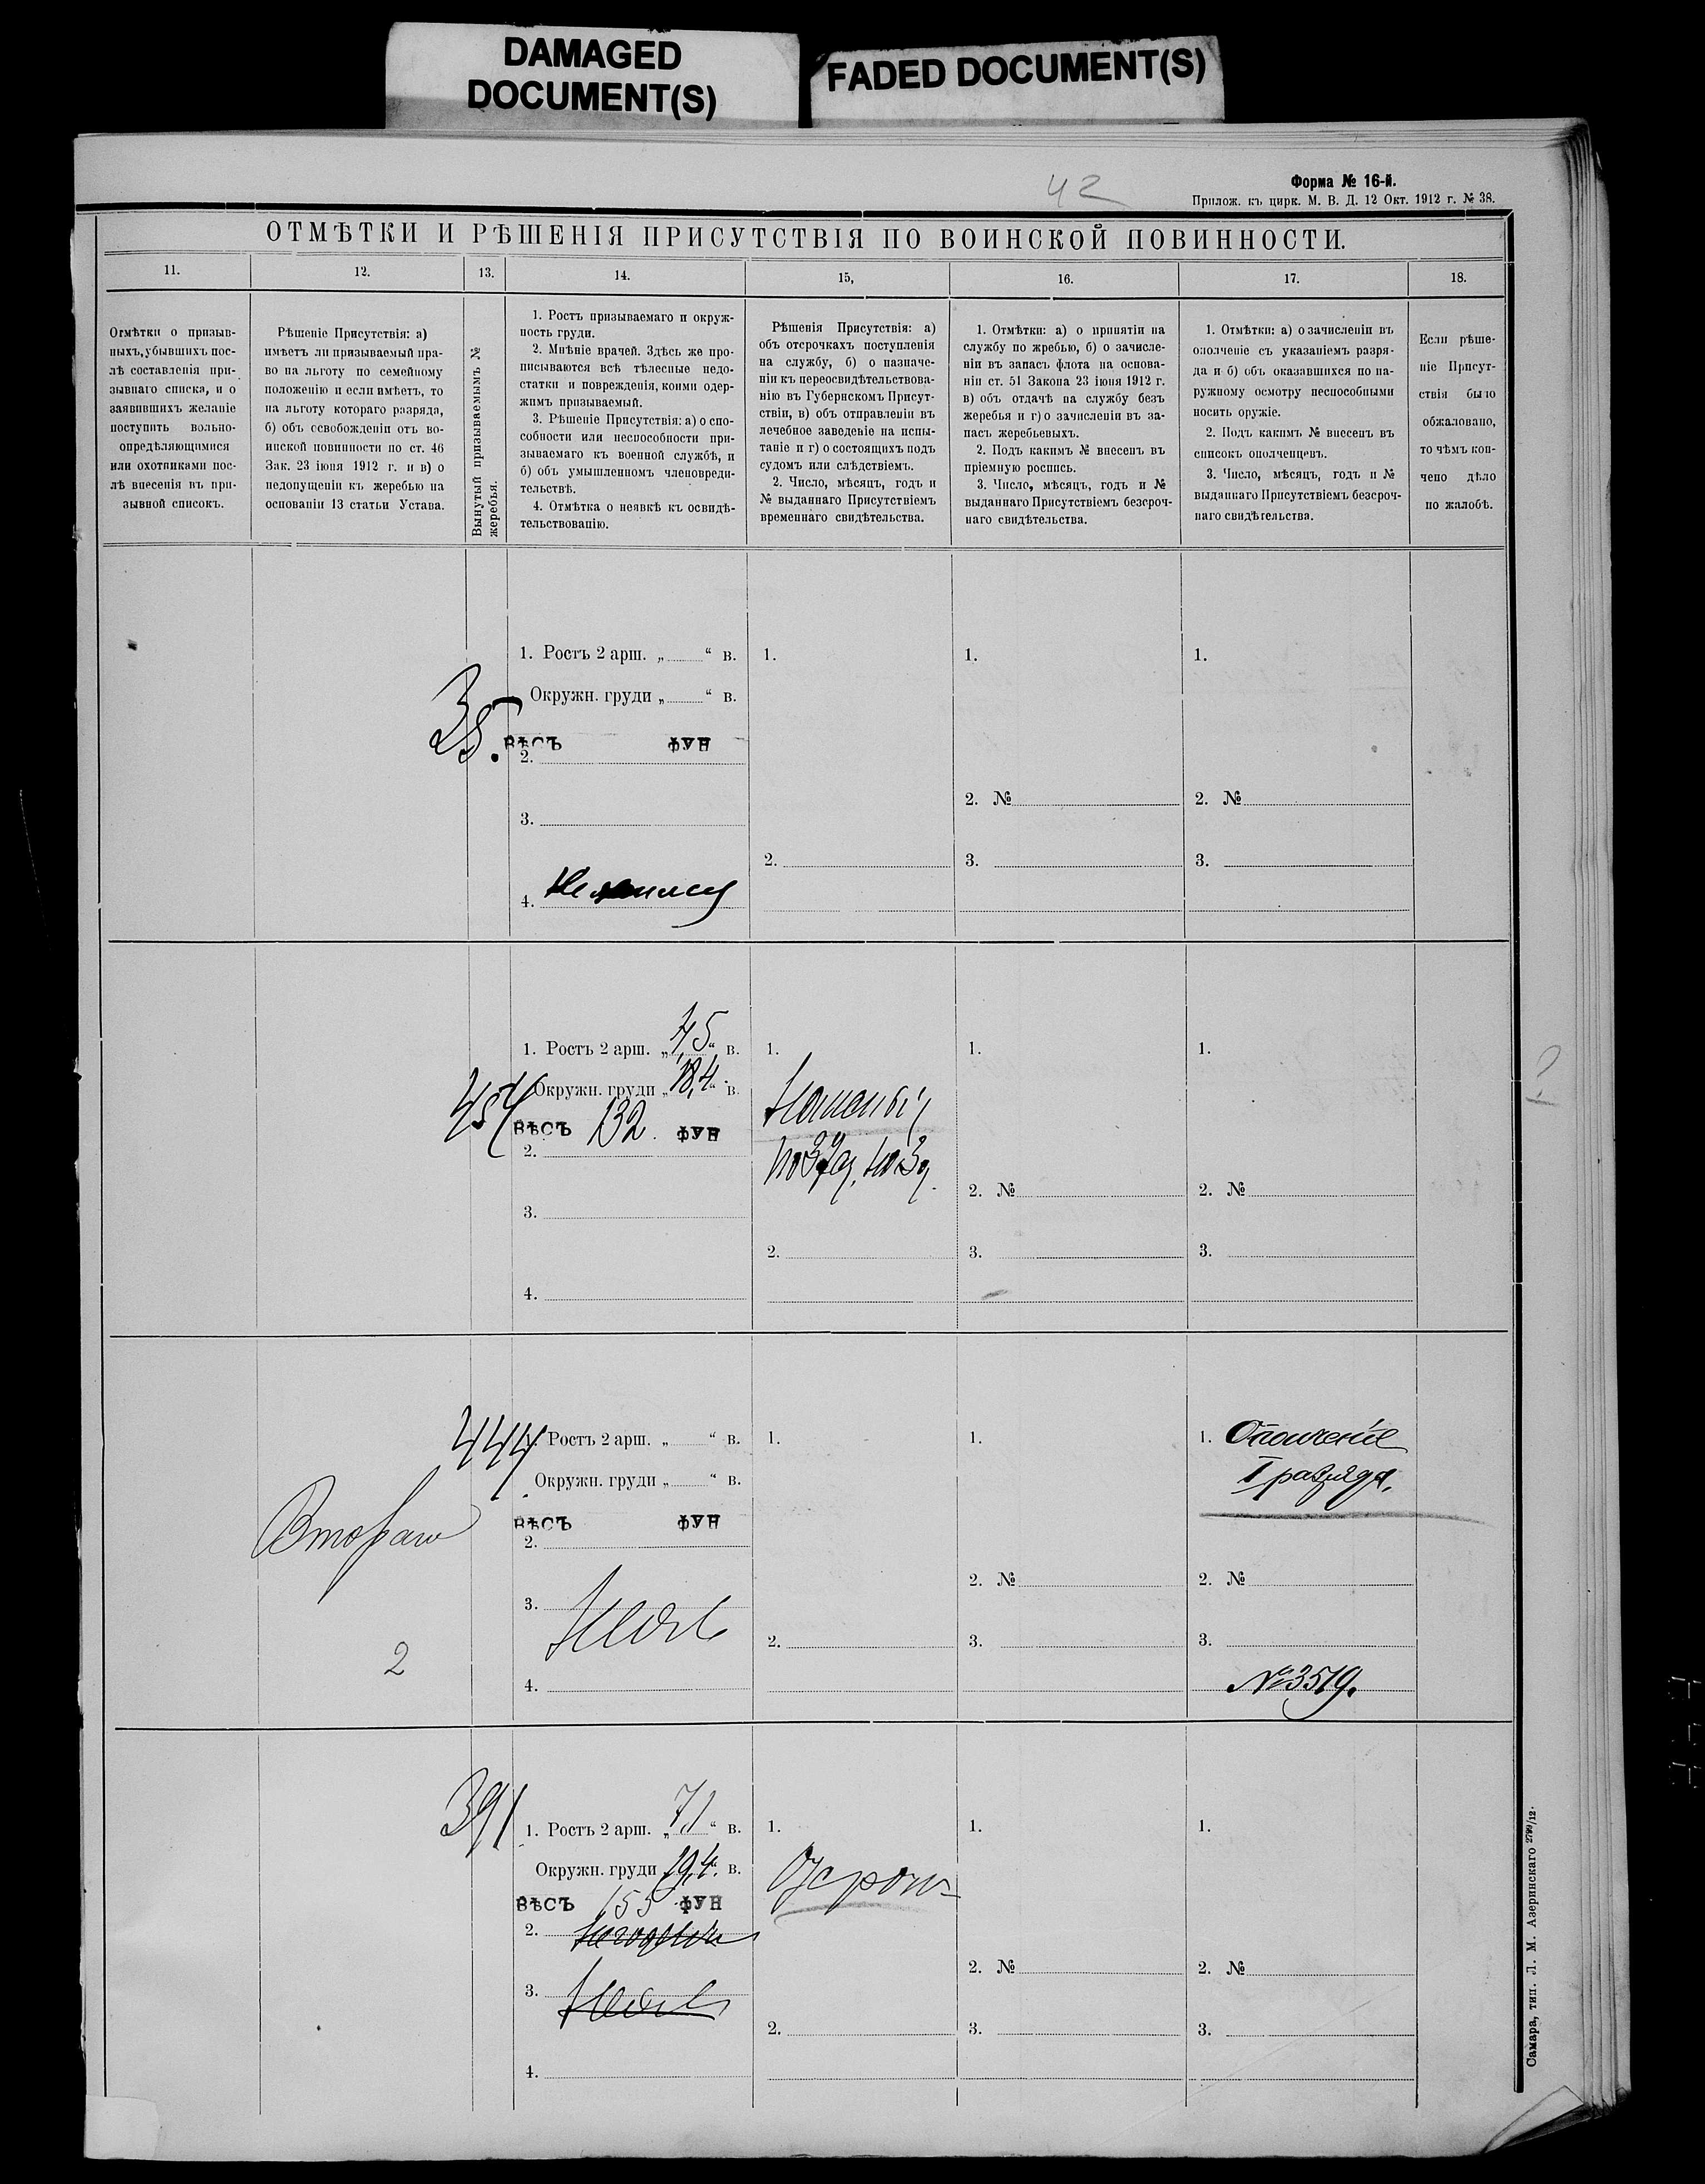 DAMAGED
DOCUMENT(S)
FADED DOCUMENT(S)
42
Форма № 16-й.
Прилож. къ цирк. М. В. Д. 12 Окт. 1912 г. № 38.
ОТМѢТКИ И РѢШЕНІЯ ПРИСУТСТВІЯ ПО ВОИНСКОЙ ПОВИННОСТИ.
11.
12.
13.
14.
15,
16.
17.
18.
Отмѣтки о призыв-
ныхъ, убывшихъ пос-
лѣ составленія при-
зывнаго списка, и о
заявившихъ желаніе
поступить вольно-
опредѣляющимися
или охотниками пос-
лѣ внесенія въ при-
зывной списокъ.
Рѣшеніе Присутствія: а)
имѣетъ ли призываемый пра-
во на льготу по семейному
положенію и если имѣетъ, то
на льготу котораго разряда,
б) объ освобожденіи отъ во-
инской повинности по ст. 46
Зак. 23 іюня 1912 г. и в) о
недопущеніи къ жеребью на
основаніи 13 статьи Устава.
Вынутый призываемымъ №
жеребья.
1. Ростъ призываемаго и окруж-
ность груди.
2. Мнѣніе врачей. Здѣсь же про-
писываются всѣ тѣлесные недо-
статки и поврежденія, коими одер-
жимъ призываемый.
3. Рѣшеніе Присутствія: а) о спо-
собности или неспособности при-
зываемаго къ военной службѣ, и
б) объ умышленномъ членовреди-
тельствѣ.
4. Отмѣтка о неявкѣ къ освидѣ-
тельствованію.
Рѣшенія Присутствія: а)
объ отсрочкахъ поступленія
на службу, б) о назначе-
ніи къ переосвидѣтельствова-
нію въ Губернскомъ Присут-
ствіи, в) объ отправленіи въ
лечебное заведеніе на испы-
таніе и г) о состоящихъ подъ
судомъ или слѣдствіемъ.
2. Число, мѣсяцъ, годъ и
№ выданнаго Присутствіемъ
временнаго свидѣтельства.
1. Отмѣтки: а) о принятіи на
службу по жребью, б) о зачисле-
ніи въ запасъ флота на основа-
ніи ст. 51 Закона 23 іюня 1912 г.
в) объ отдачѣ на службу безъ
жеребья и г) о зачисленіи въ за-
пасъ жеребьевыхъ.
2. Подъ какимъ № внесенъ въ
пріемную роспись.
3. Число, мѣсяцъ, годъ и №
выданнаго Присутствіемъ безсроч-
наго свидѣтельства.
1. Отмѣтки: а) о зачисленіи въ
ополченіе съ указаніемъ разря-
да и б) объ оказавшихся по на-
ружному осмотру неспособными
носить оружіе.
2. Подъ какимъ № внесенъ въ
списокъ ополченцевъ.
3. Число, мѣсяцъ, годъ и №
выданнаго Присутствіемъ безсроч-
наго свидѣтельства.
Если рѣше-
ніе Присут-
ствія было
обжаловано,
то чѣмъ кон-
чено дѣло
по жалобѣ.
35.
1. Ростъ 2 арш. „ “ в.
Окружн. груди „ “ в.
вѣсъ фун
2.
3.
4. Не явился
1.
2.
1.
2. №
3.
1.
2. №
3.
454
1. Ростъ 2 арш. „4,5“ в.
Окружн. груди „18,4“ в.
вѣсъ 132 фун
2.
3.
4.
1.
2.
1.
2. №
3.
1.
2. №
3.
Второго
2
444
1. Ростъ 2 арш. „ “ в.
Окружн. груди „ “ в.
вѣсъ фун
2.
3.
4.
1.
2.
1.
2. №
3.
1. Ополченіе
I разряда.
2. №
3.
№ 3519.
391
1. Ростъ 2 арш. „7,1“ в.
Окружн. груди „19,4“ в.
вѣсъ 155 фун
2.
3.
4.
1.
2.
1.
2. №
3.
1.
2. №
3.
Самара, тип. Л. М. Азеринскаго 2799/12.